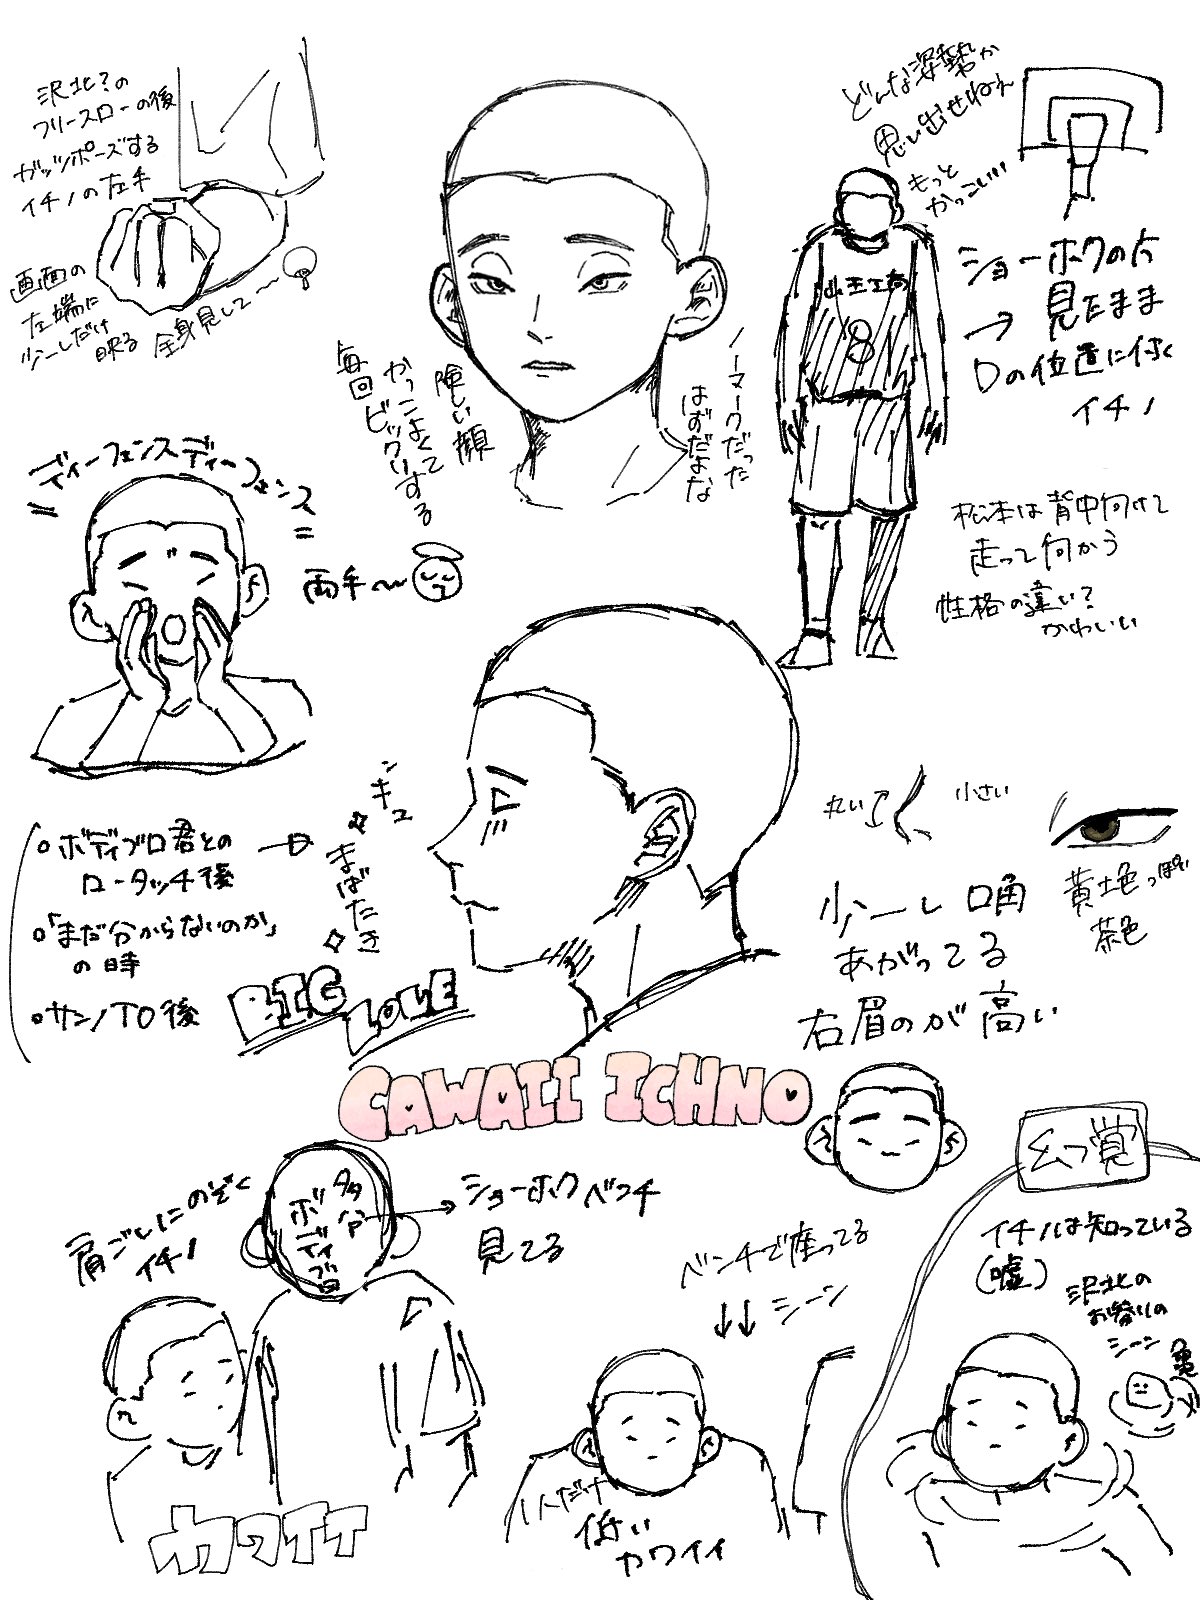 沢北?の
フリースローの後
ガッツポーズする
イチノの左手
画面の
左端に
少ーしだけ
映る
全身見して〜
どんな姿勢か
思い出せねえ
もっと
かっこいい
山王工高
8
ショーホクの方
→ 見たまま
Dの位置に付く
イチノ
松本は背中向けて
走って向かう
性格の違い?
かわいい
ノーマークだった
はずだよな
険しい顔
かっこよくて
毎回ビックリする
ディーフェンスディーフェンス
両手〜
ギュ
まばたき
ボディブロ君との
ロータッチ後
「まだ分からないのか」
の時
サンノTO後
BIG
LOVE
丸い
小さい
黄土色っぽい
茶色
少ーし口角
あがってる
右眉のが高い
CAWAII ICHNO
肩ごしにのぞく
イチノ
多分
ボディブロ
→ショーホクベンチ
見てる
カワイイ
ベンチで座ってる
↓↓シーン
1人だけ
低い
カワイイ
幻覚
イチノは知っている
(嘘)
沢北の
お參りの
シーン